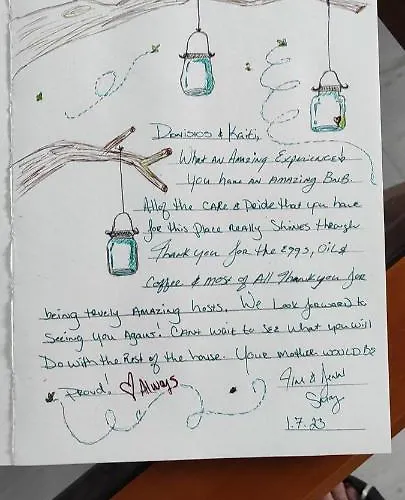 Dionisios & Kaiti,
What an Amazing Experience!
You have an AMAZING BnB.
All of the CARE & Pride that you have
for this Place Really Shines through
Thank you for the eggs, Oil &
Coffee & most of All Thank you for
being truly AMAZING hosts. We Look forward to
Seeing You Again! CANT wait to See What you will
Do with the Rest of the house. Your Mother WOULD BE
Proud! Always
&
1.7.23